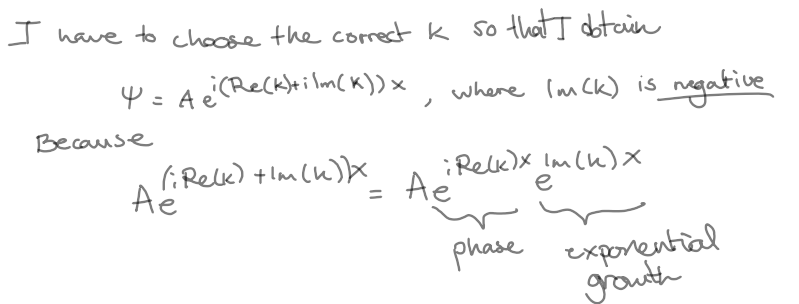 I have to choose the correct k so that I obtain
ψ = A e^{i(Re(k)+iIm(k))x}, where Im(k) is negative
Because
A e^{(iRe(k)+Im(k))x} = A e^{iRe(k)x} e^{Im(k)x}
phase exponential
growth